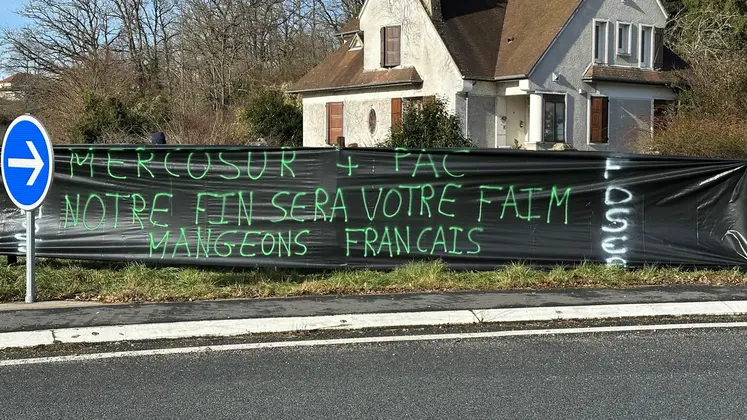 MERCOSUR + PAC
NOTRE FIN SERA VOTRE FAIM
MANGEONS FRANCAIS